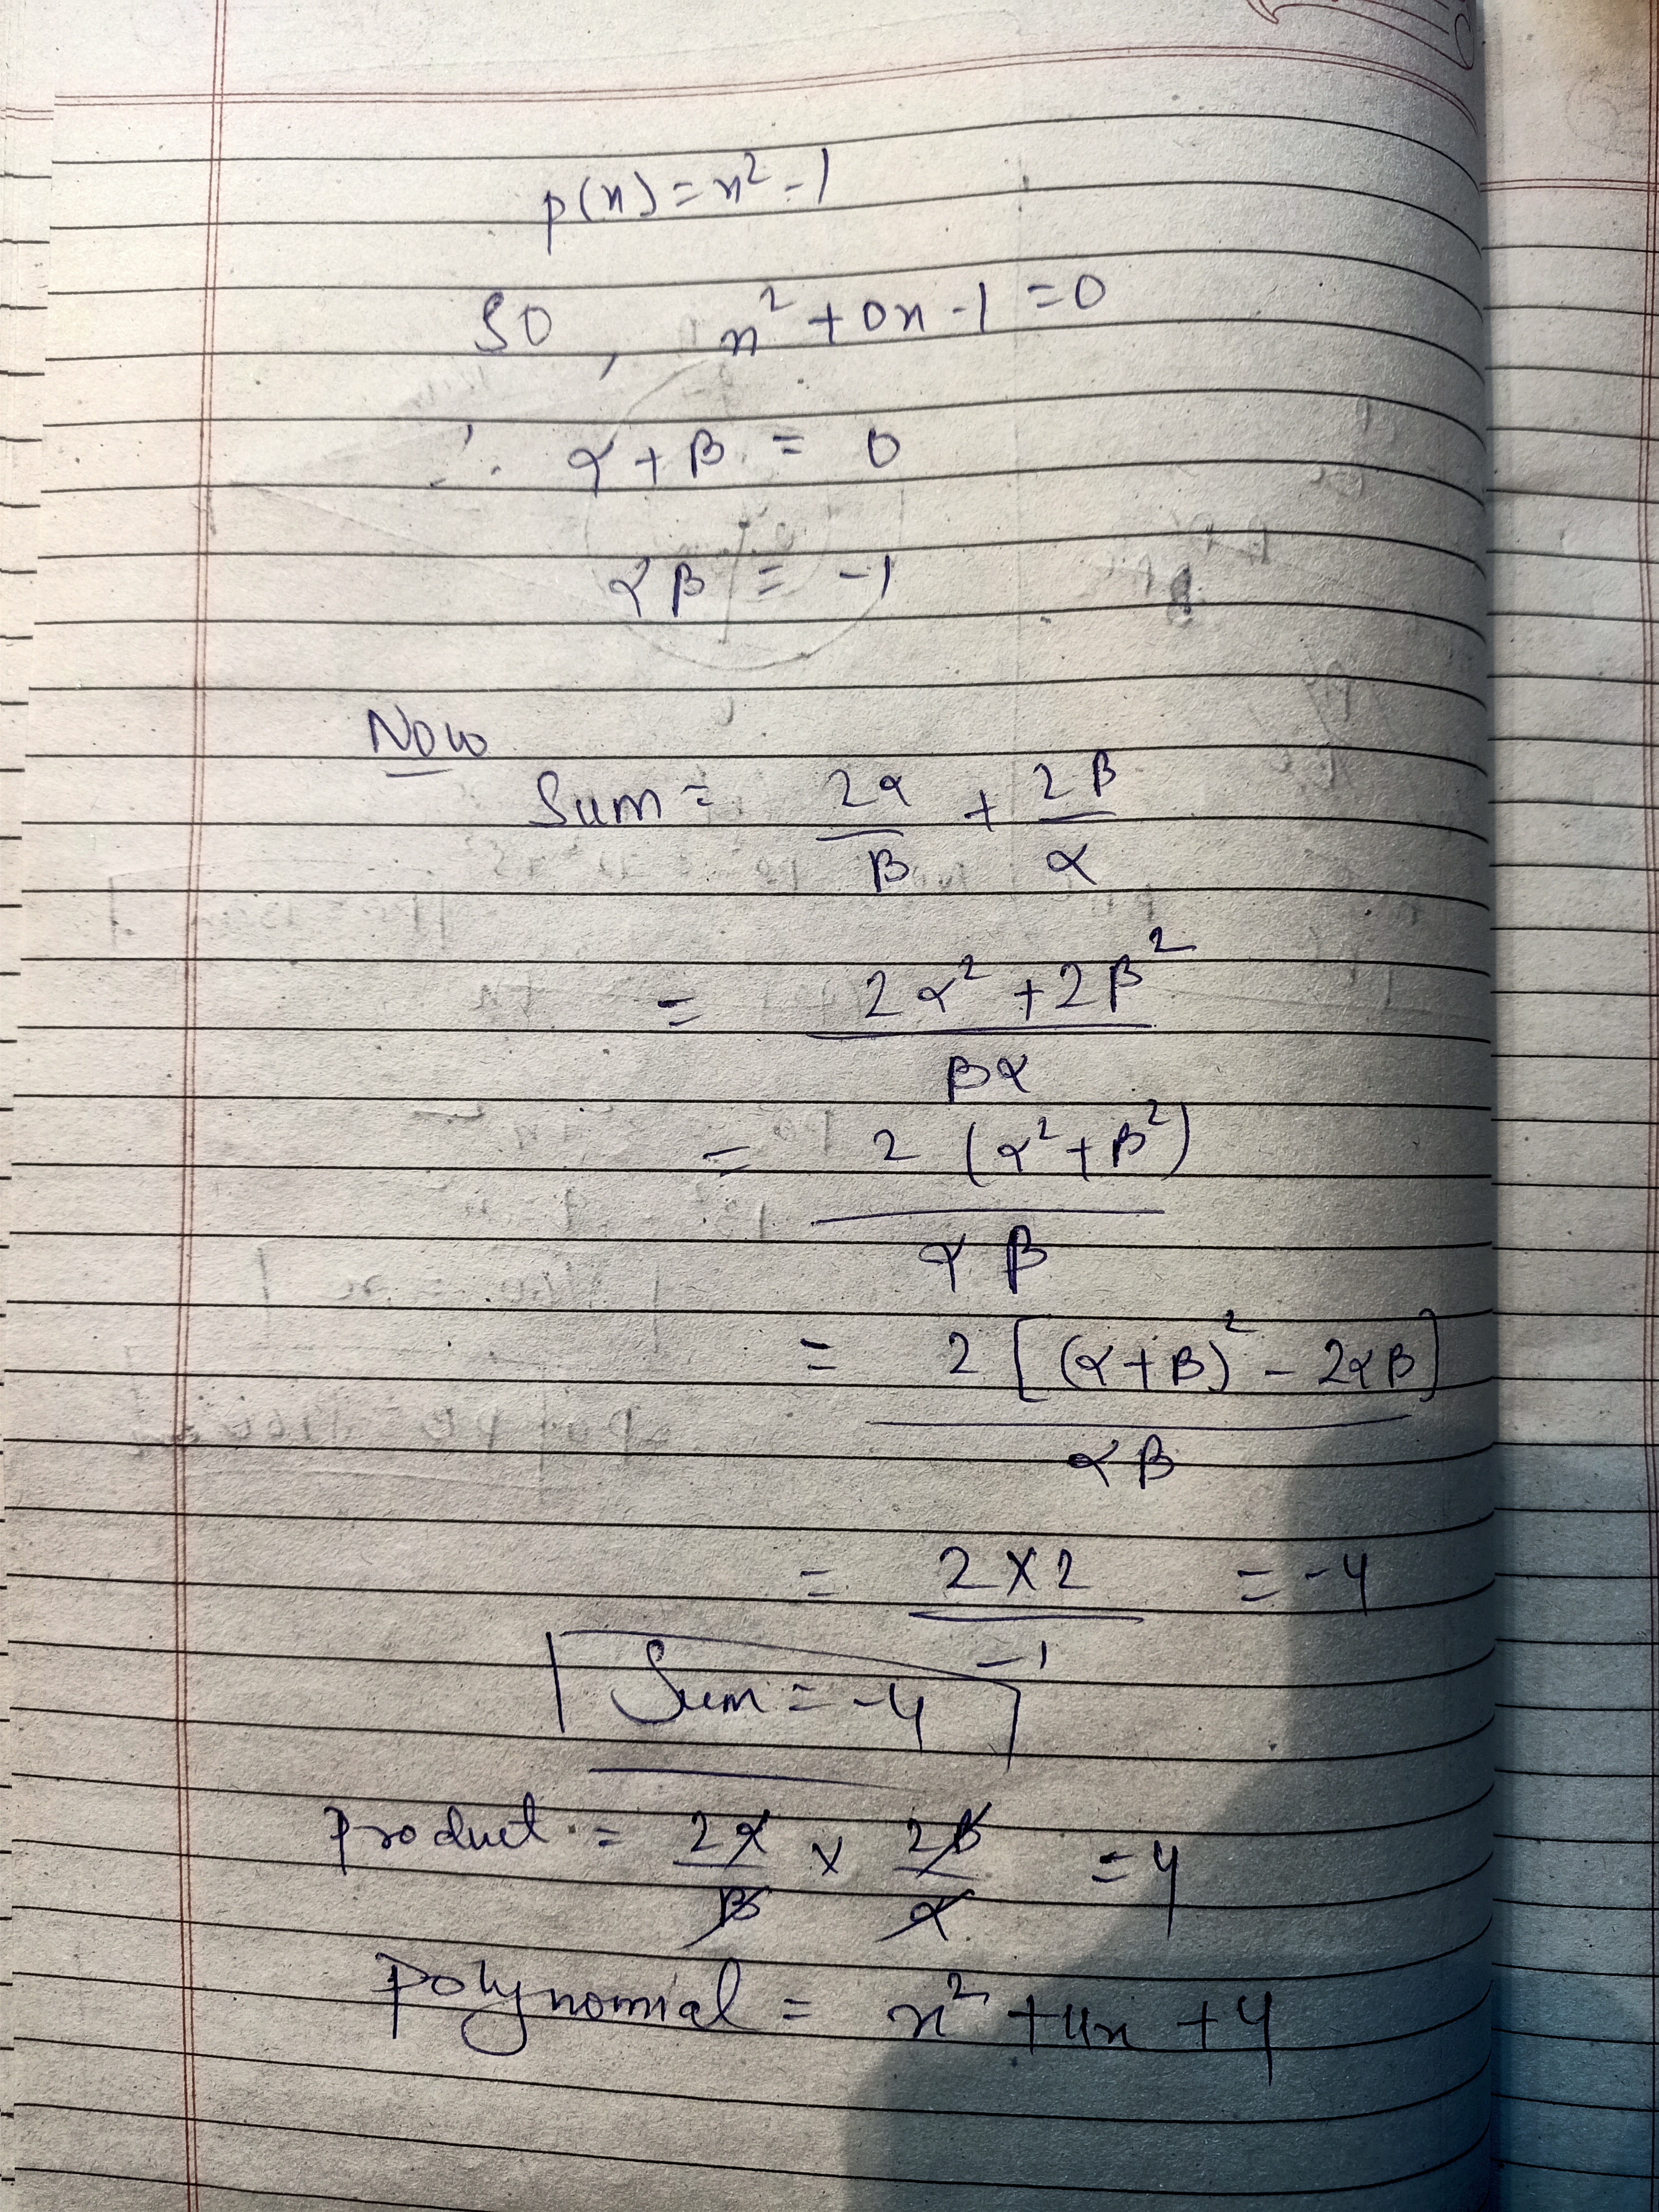 p(x) = x² - 1
SO, x² + 0x - 1 = 0
∴ α + β = 0
αβ = -1
Now
Sum = 2α/β + 2β/α
= (2α² + 2β²)/βα
= 2(α² + β²)/αβ
= 2[(α + β)² - 2αβ]/αβ
= (2 × 2)/-1 = -4
Sum = -4
Product = 2α/β × 2β/α = 4
Polynomial = x² + 4x + 4